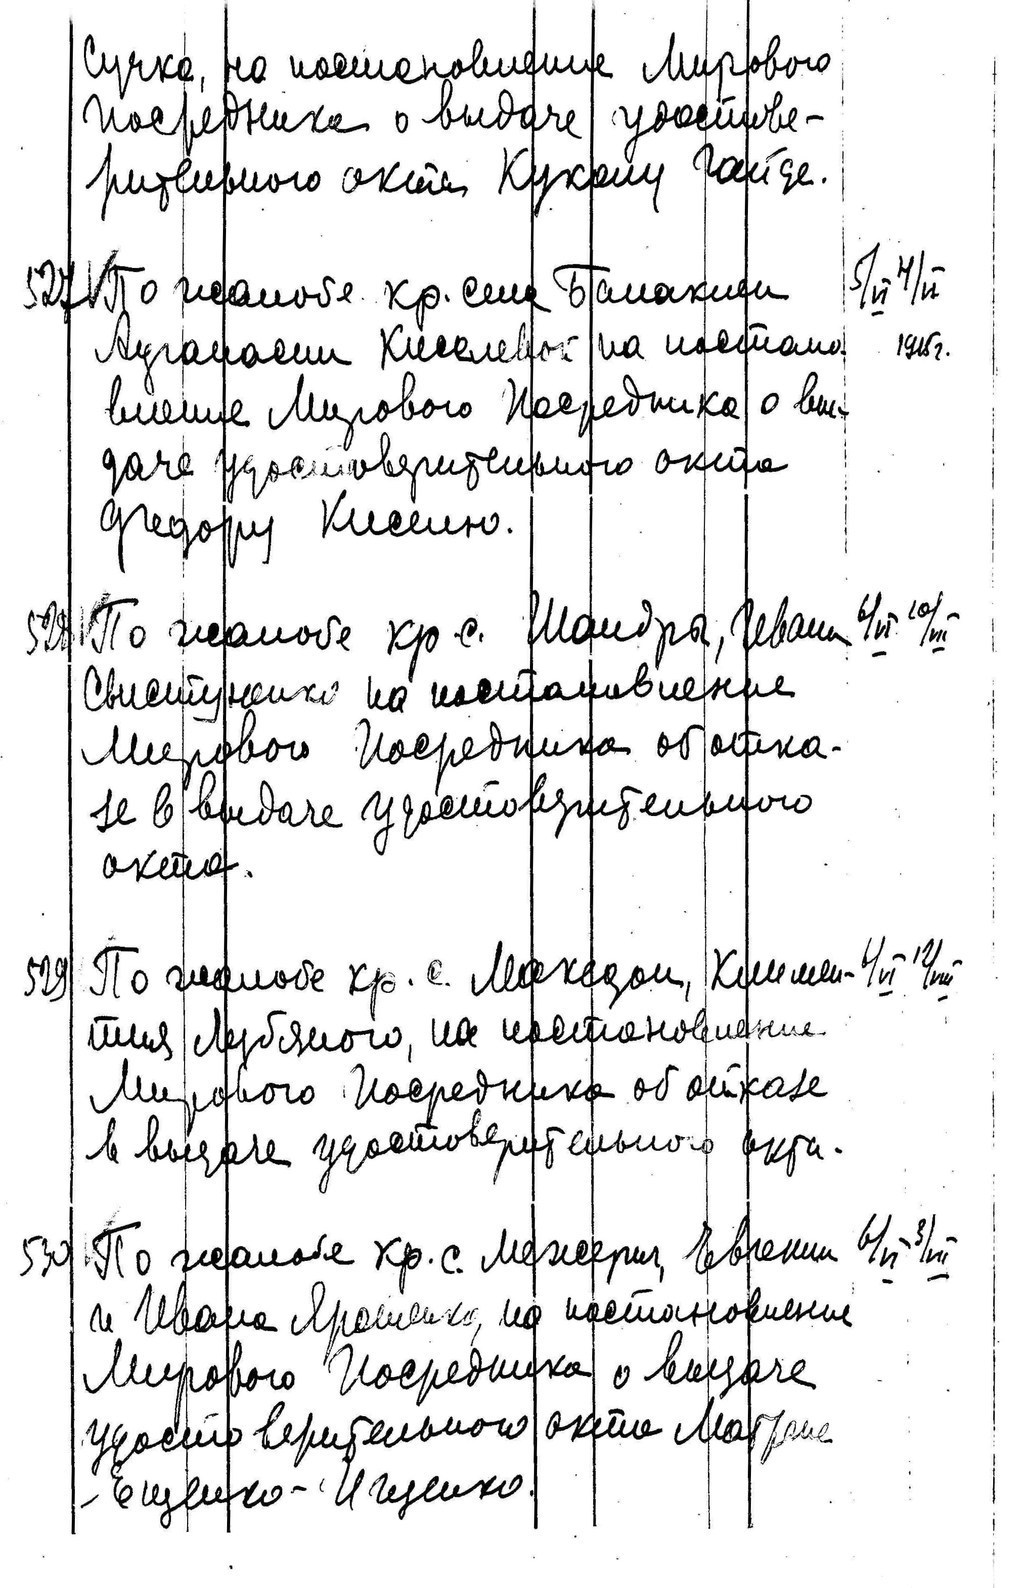 Сучка, на постановление Мирового
Посредника о выдаче удостове-
рительного акта Кукому Гайде.
527 По жалобе кр. села Балакиеи 5/VI 4/II
Афанасии Киселевой на постано- 1915г.
вление Мирового Посредника о вы-
даче удостоверительного акта
Федору Киселю.
528 По жалобе кр. с. Шандры, Ивана 6/VI 20/VIII
Свистуненко на постановление
Мирового Посредника об отка-
зе в выдаче удостоверительного
акта.
529 По жалобе кр. с. Македон, Климен- 6/VI 12/VIII
тия Лубяного, на постановление
Мирового Посредника об отказе
в выдаче удостоверительного акта.
530 По жалобе кр. с. Межерич, Евгении 6/VI 3/VII
и Ивана Ярошенко, на постановление
Мирового Посредника о выдаче
удостоверительного акта Матроне
-Ещенко-Ищенко.